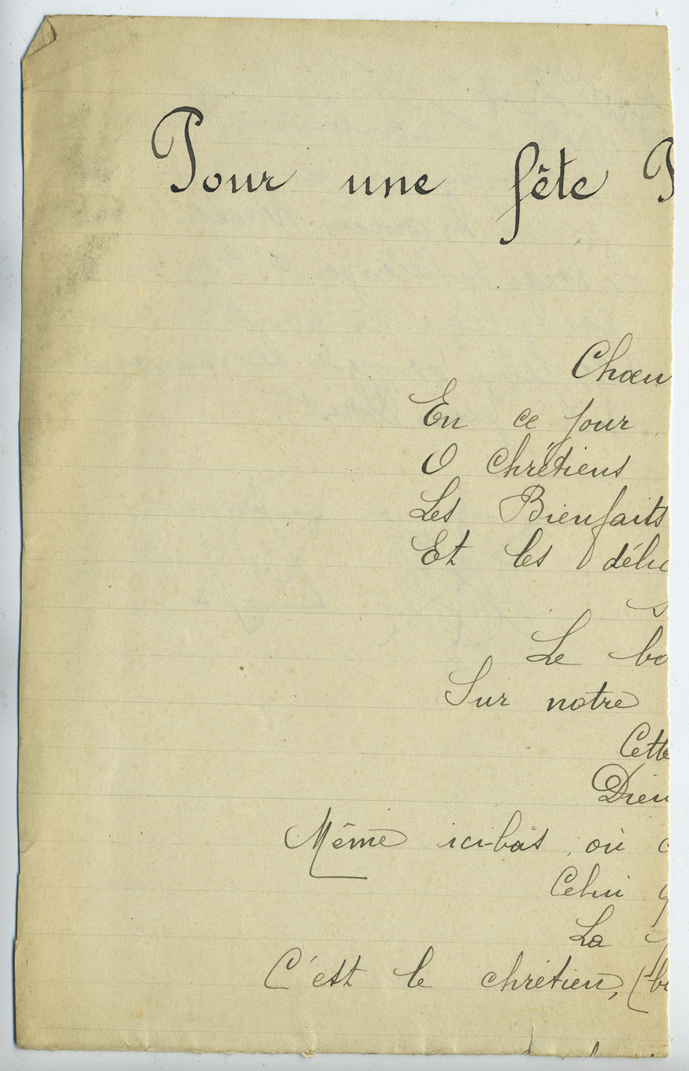 Pour une fête
Chœu
En ce jour
O Chrétiens
Les Bienfaits
Et les délic
Le bo
Sur notre
Cette
Dieu
Même ici-bas, où c
Celui q
La
C'est le chrétien, (bi